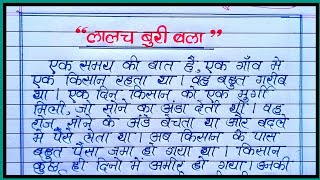 “लालच बुरी बला”
एक समय की बात है, एक गाँव में
एक किसान रहता था। वह बहुत गरीब
था। एक दिन, किसान को एक मुर्गी
मिली, जो सोने का अंडा देती थी। वह
रोज, सोने के अंडे बेचता था और बदले
में पैसे लेता था। अब किसान के पास
बहुत पैसा जमा हो गया था। किसान
कुछ ही दिनों में अमीर हो गया। उनकी